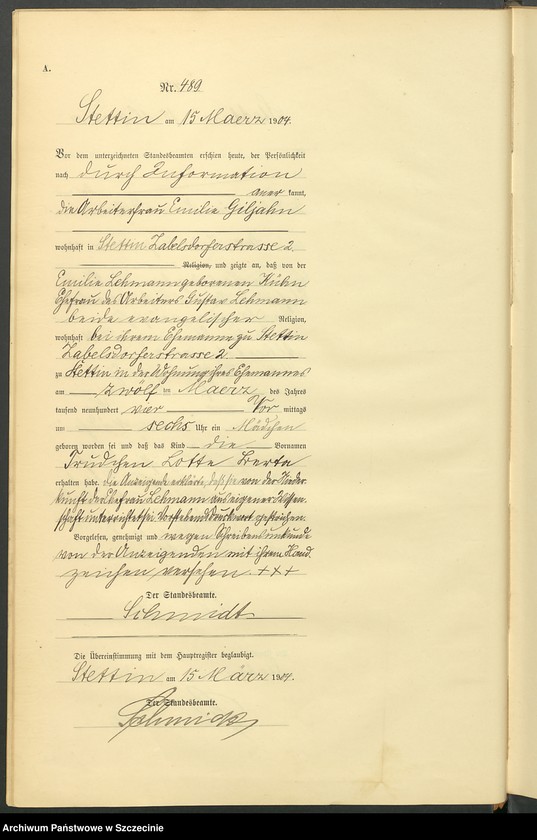 A.
Nr. 489
Stettin am 15 Maerz 1904.
Vor dem unterzeichneten Standesbeamten erschien heute, der Persönlichkeit
nach durch Information
aner kannt,
die Arbeiterfrau Emilie Giljahn
wohnhaft in Stettin Zabelsdorferstrasse 2
Religion, und zeigte an, daß von der
Emilie Lehmann geborenen Kühn
Ehefrau des Arbeiters Gustav Lehmann
beide evangelischer Religion,
wohnhaft bei ihrem Ehemanne zu Stettin
Zabelsdorferstrasse 2
zu Stettin in der Wohnung ihres Ehemannes
am zwölf ten Maerz des Jahres
tausend neunhundert vier Vor mittags
um sechs Uhr ein Mädchen
geboren worden sei und daß das Kind die Vornamen
Trudchen Lotte Berta
erhalten habe. Die Anzeigende erklärte, daß sie von der Nieder
kunft der Ehefrau Lehmann aus eigener Wissen
schaft unterrichtet sei. Vorstehend Druckwort gestrichen.
Vorgelesen, genehmigt und wegen Schreibensunkunde
von der Anzeigenden mit ihrem Hand
zeichen versehen. +++
Der Standesbeamte.
Schmidt
Die Übereinstimmung mit dem Hauptregister beglaubigt.
Stettin am 15 März 1904.
Der Standesbeamte.
Schmidt
Archiwum Państwowe w Szczecinie